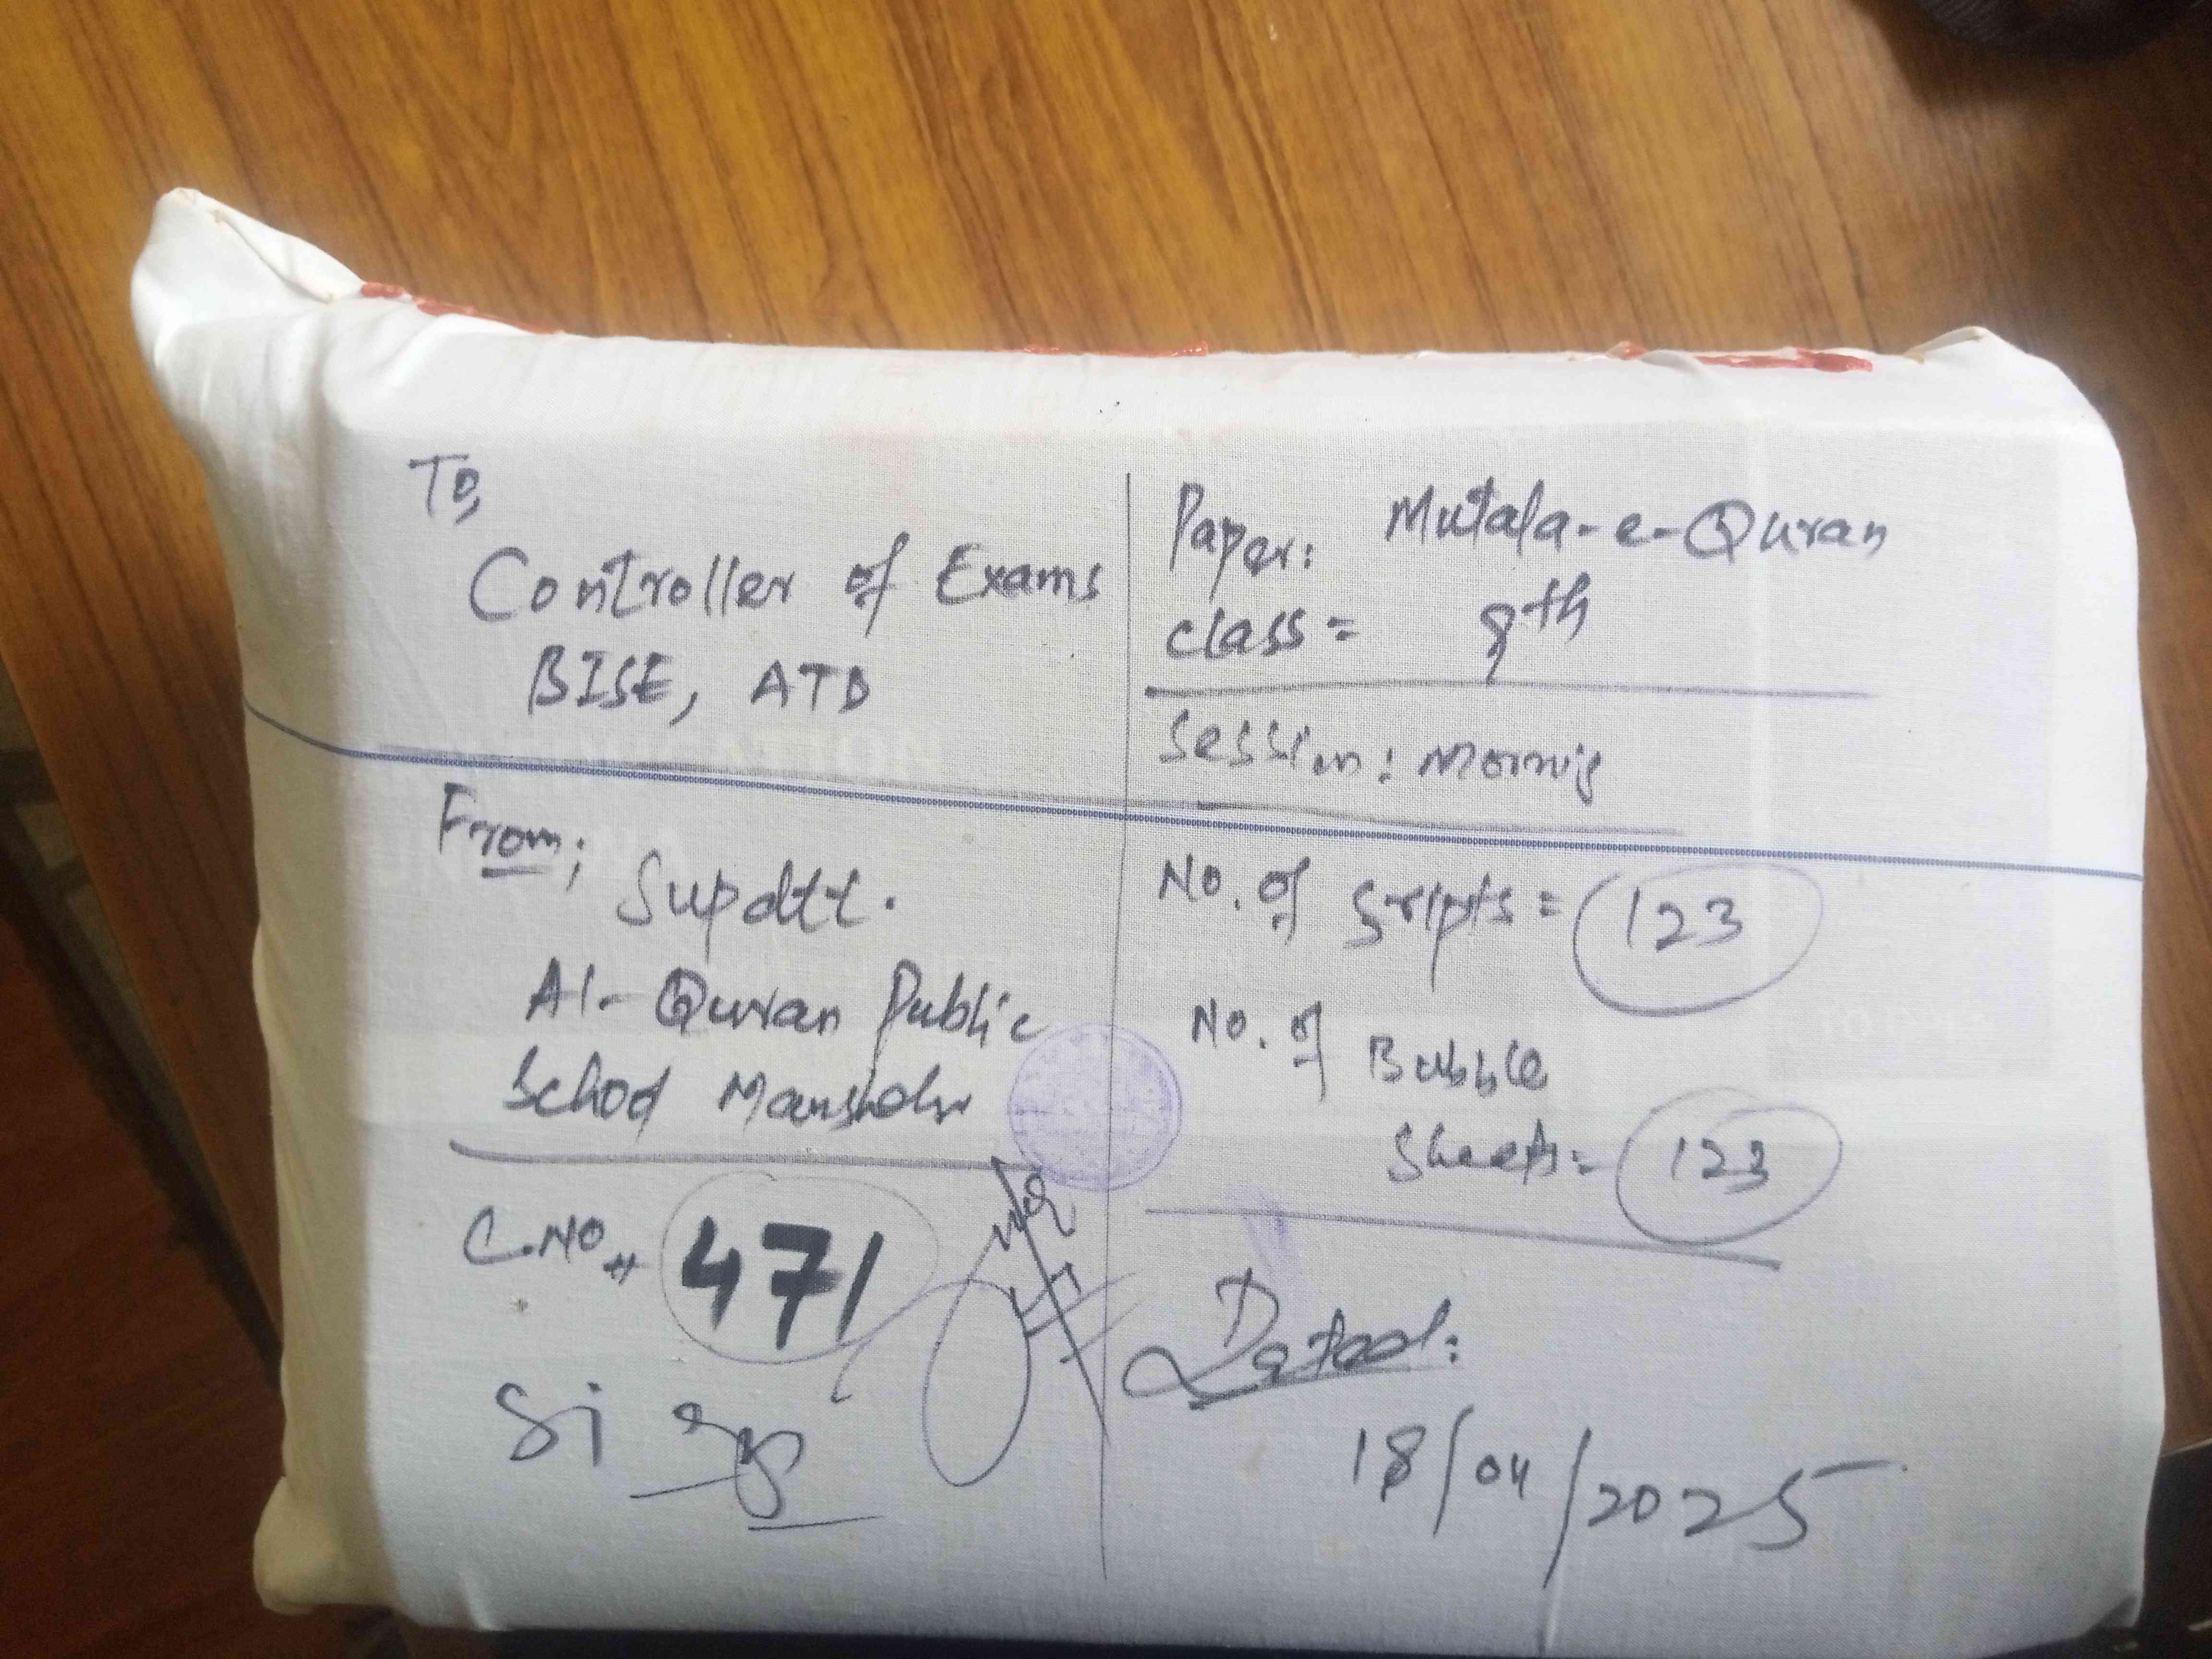 To,
Controller of Exams
BISE, ATD
From;
Supdtt.
Al-Quran Public
School Mansehra
C.No.
471
Paper: Mutala-e-Quran
class = 9th
Session: Morning
No. of Scripts = 123
No. of Bubble
Sheets = 123
Dated:
18/04/2025